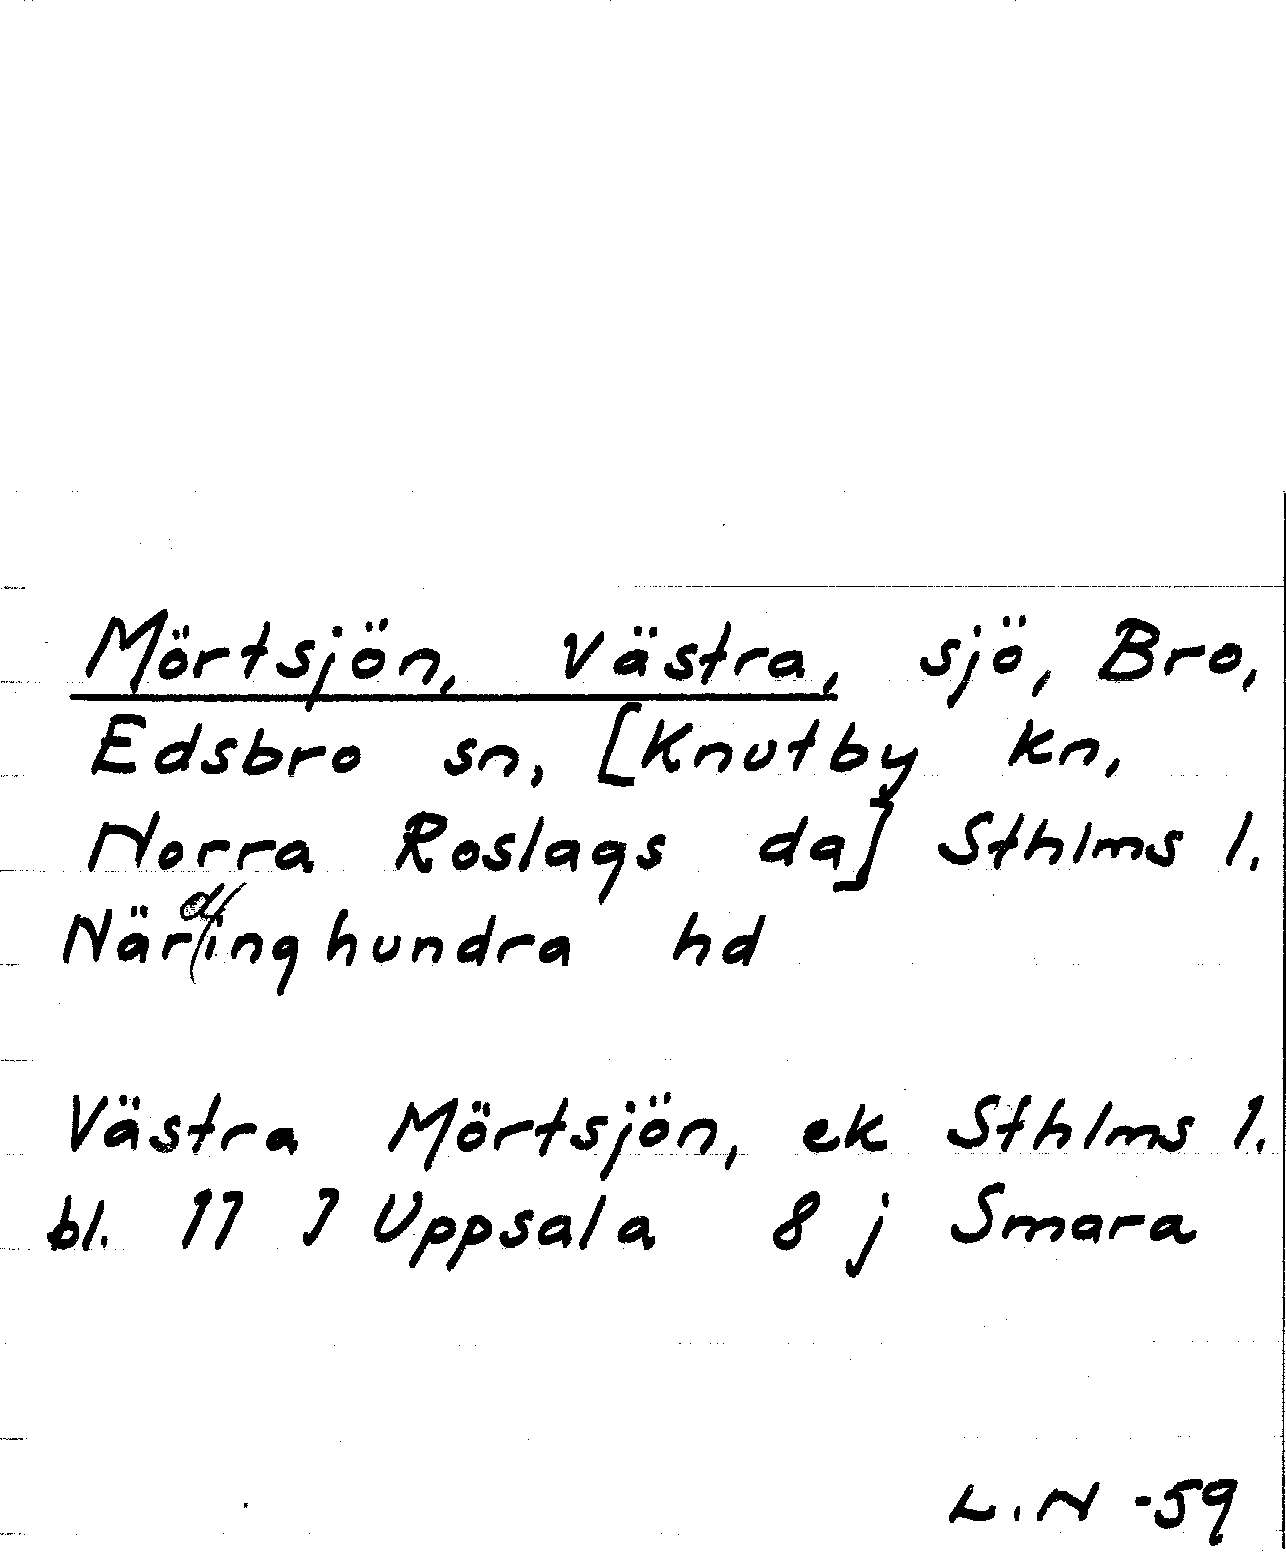 Mörtsjön, Västra, sjö, Bro,
Edsbro sn, [Knutby kn,
Norra Roslags da] Sthlms l.
Närdinghundra hd
Västra Mörtsjön, ek Sthlms l.
bl. 11 I Uppsala 8 j Smara
L.N -59